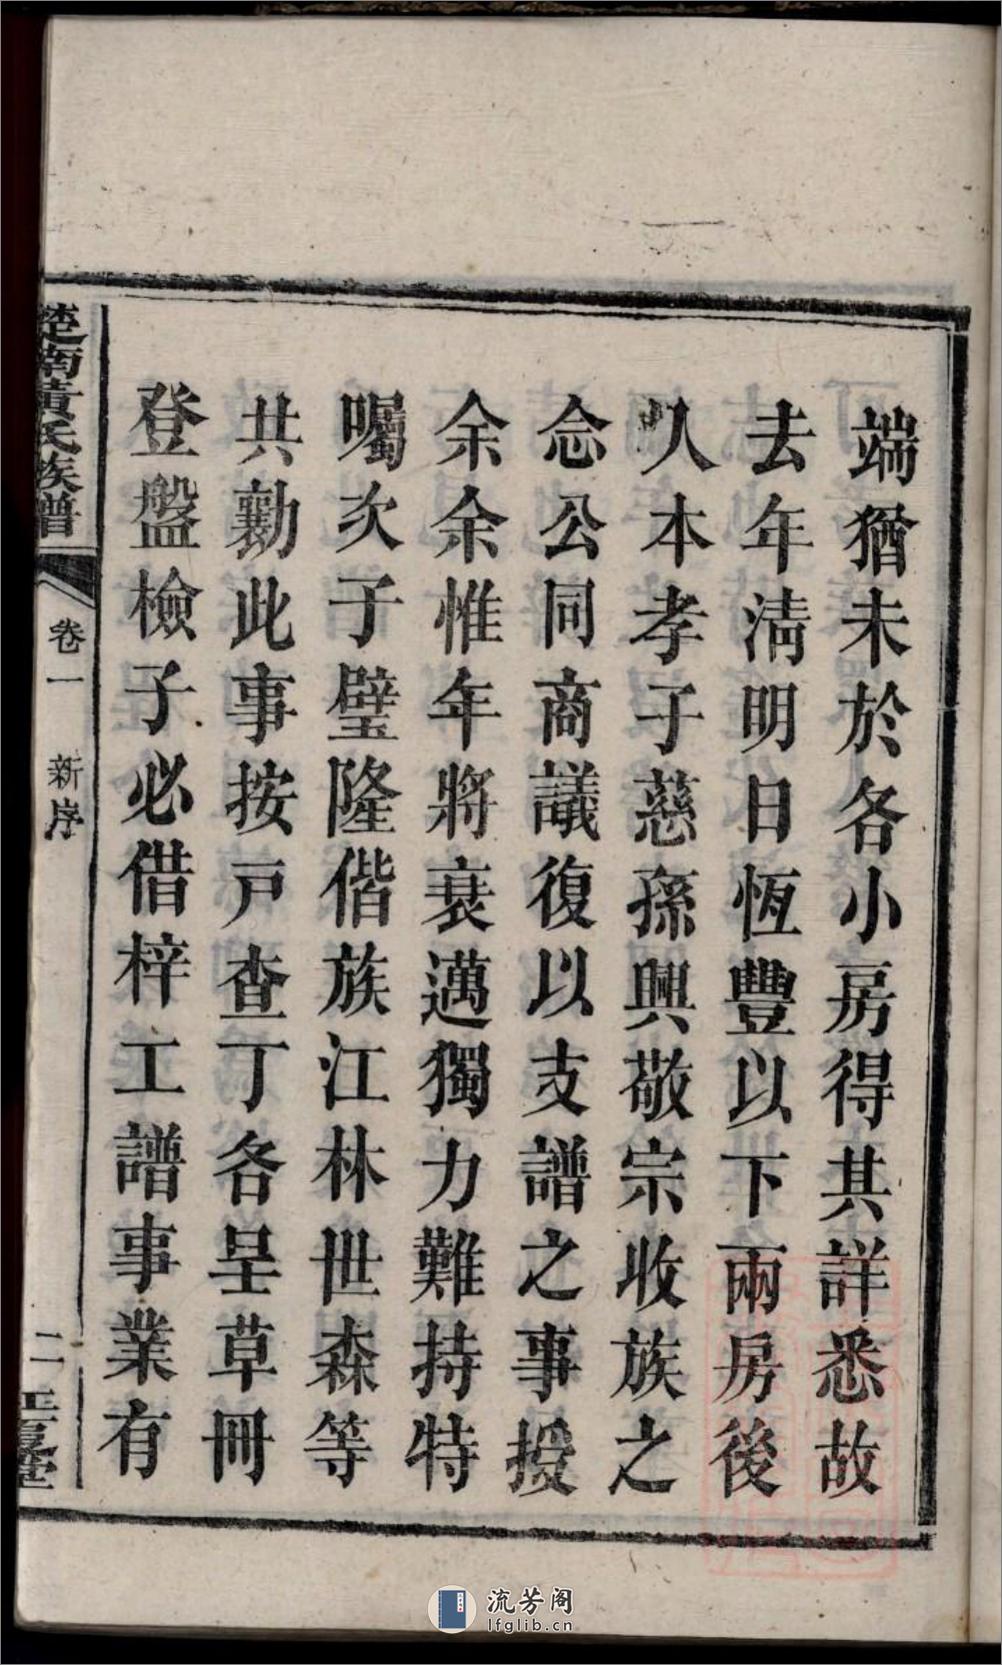 端猶未於各小房得其詳悉故
去年淸明日恆豐以下兩房後
人本孝子慈孫興敬宗收族之
念公同商議復以支譜之事授
余余惟年將衰邁獨力難持特
囑次子璧隆偕族江林世森等
共勷此事按戸查丁各呈草冊
登盤檢子必借梓工譜事業有
楚南黃氏族譜
卷一 新序
二
流芳阁
lfglib.cn